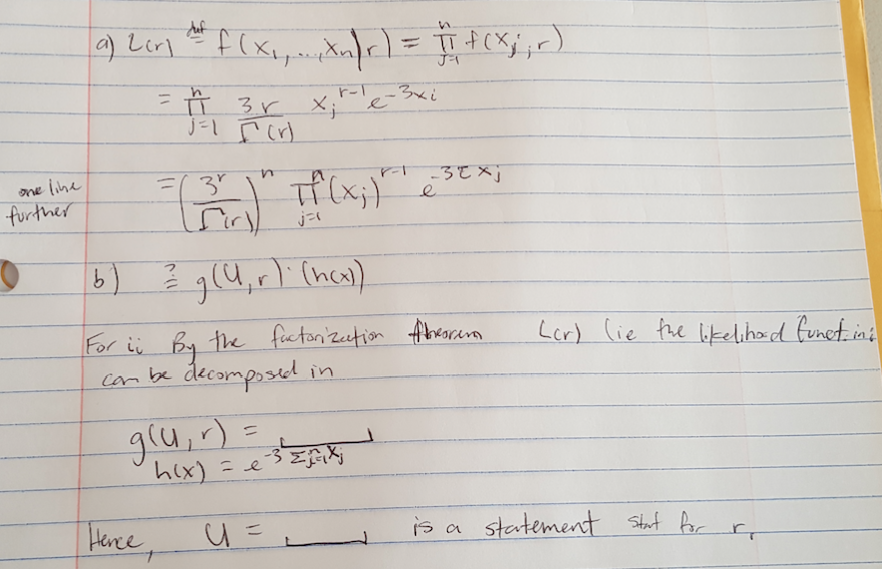 a) L(r) def= f(x₁, ..., xₙ|r) = ∏ⱼ₌₁ⁿ f(xⱼ; r)
= ∏ⱼ₌₁ⁿ 3r/Γ(r) xⱼ^(r-1) e^(-3xi)
one line further
= (3^r/Γ(r))^n ∏ⱼ₌₁ⁿ (xⱼ)^(r-1) e^(-3Σxⱼ)
b) ?= g(U, r) · (h(x))
For ii By the factorization theorem L(r) (ie the likelihood
can be decomposed in
g(U, r) = ____
h(x) = e^(-3 Σⱼ₌₁ⁿ xⱼ)
Hence, U = ____ is a statement stat for r,